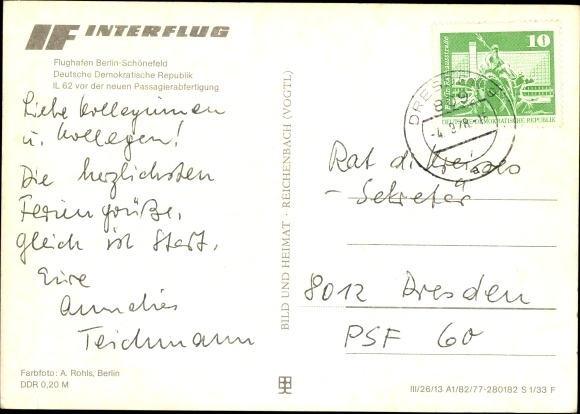 IF INTERFLUG
Flughafen Berlin-Schönefeld
Deutsche Demokratische Republik
IL 62 vor der neuen Passagierabfertigung
Liebe Kolleginnen
u. Kollegen!
Die herzlichsten
Feriengrüße,
gleich ist Start.
Eure
Annelies
Teichmann
Farbfoto: A. Rohls, Berlin
DDR 0,20 M
BILD UND HEIMAT · REICHENBACH (VOGTL)
10
DEUTSCHE DEMOKRATISCHE REPUBLIK
DRESDEN
Rat d. Kreises
- Sekretär
8012 Dresden
PSF 60
III/26/13 A1/82/77-280182 S 1/33 F